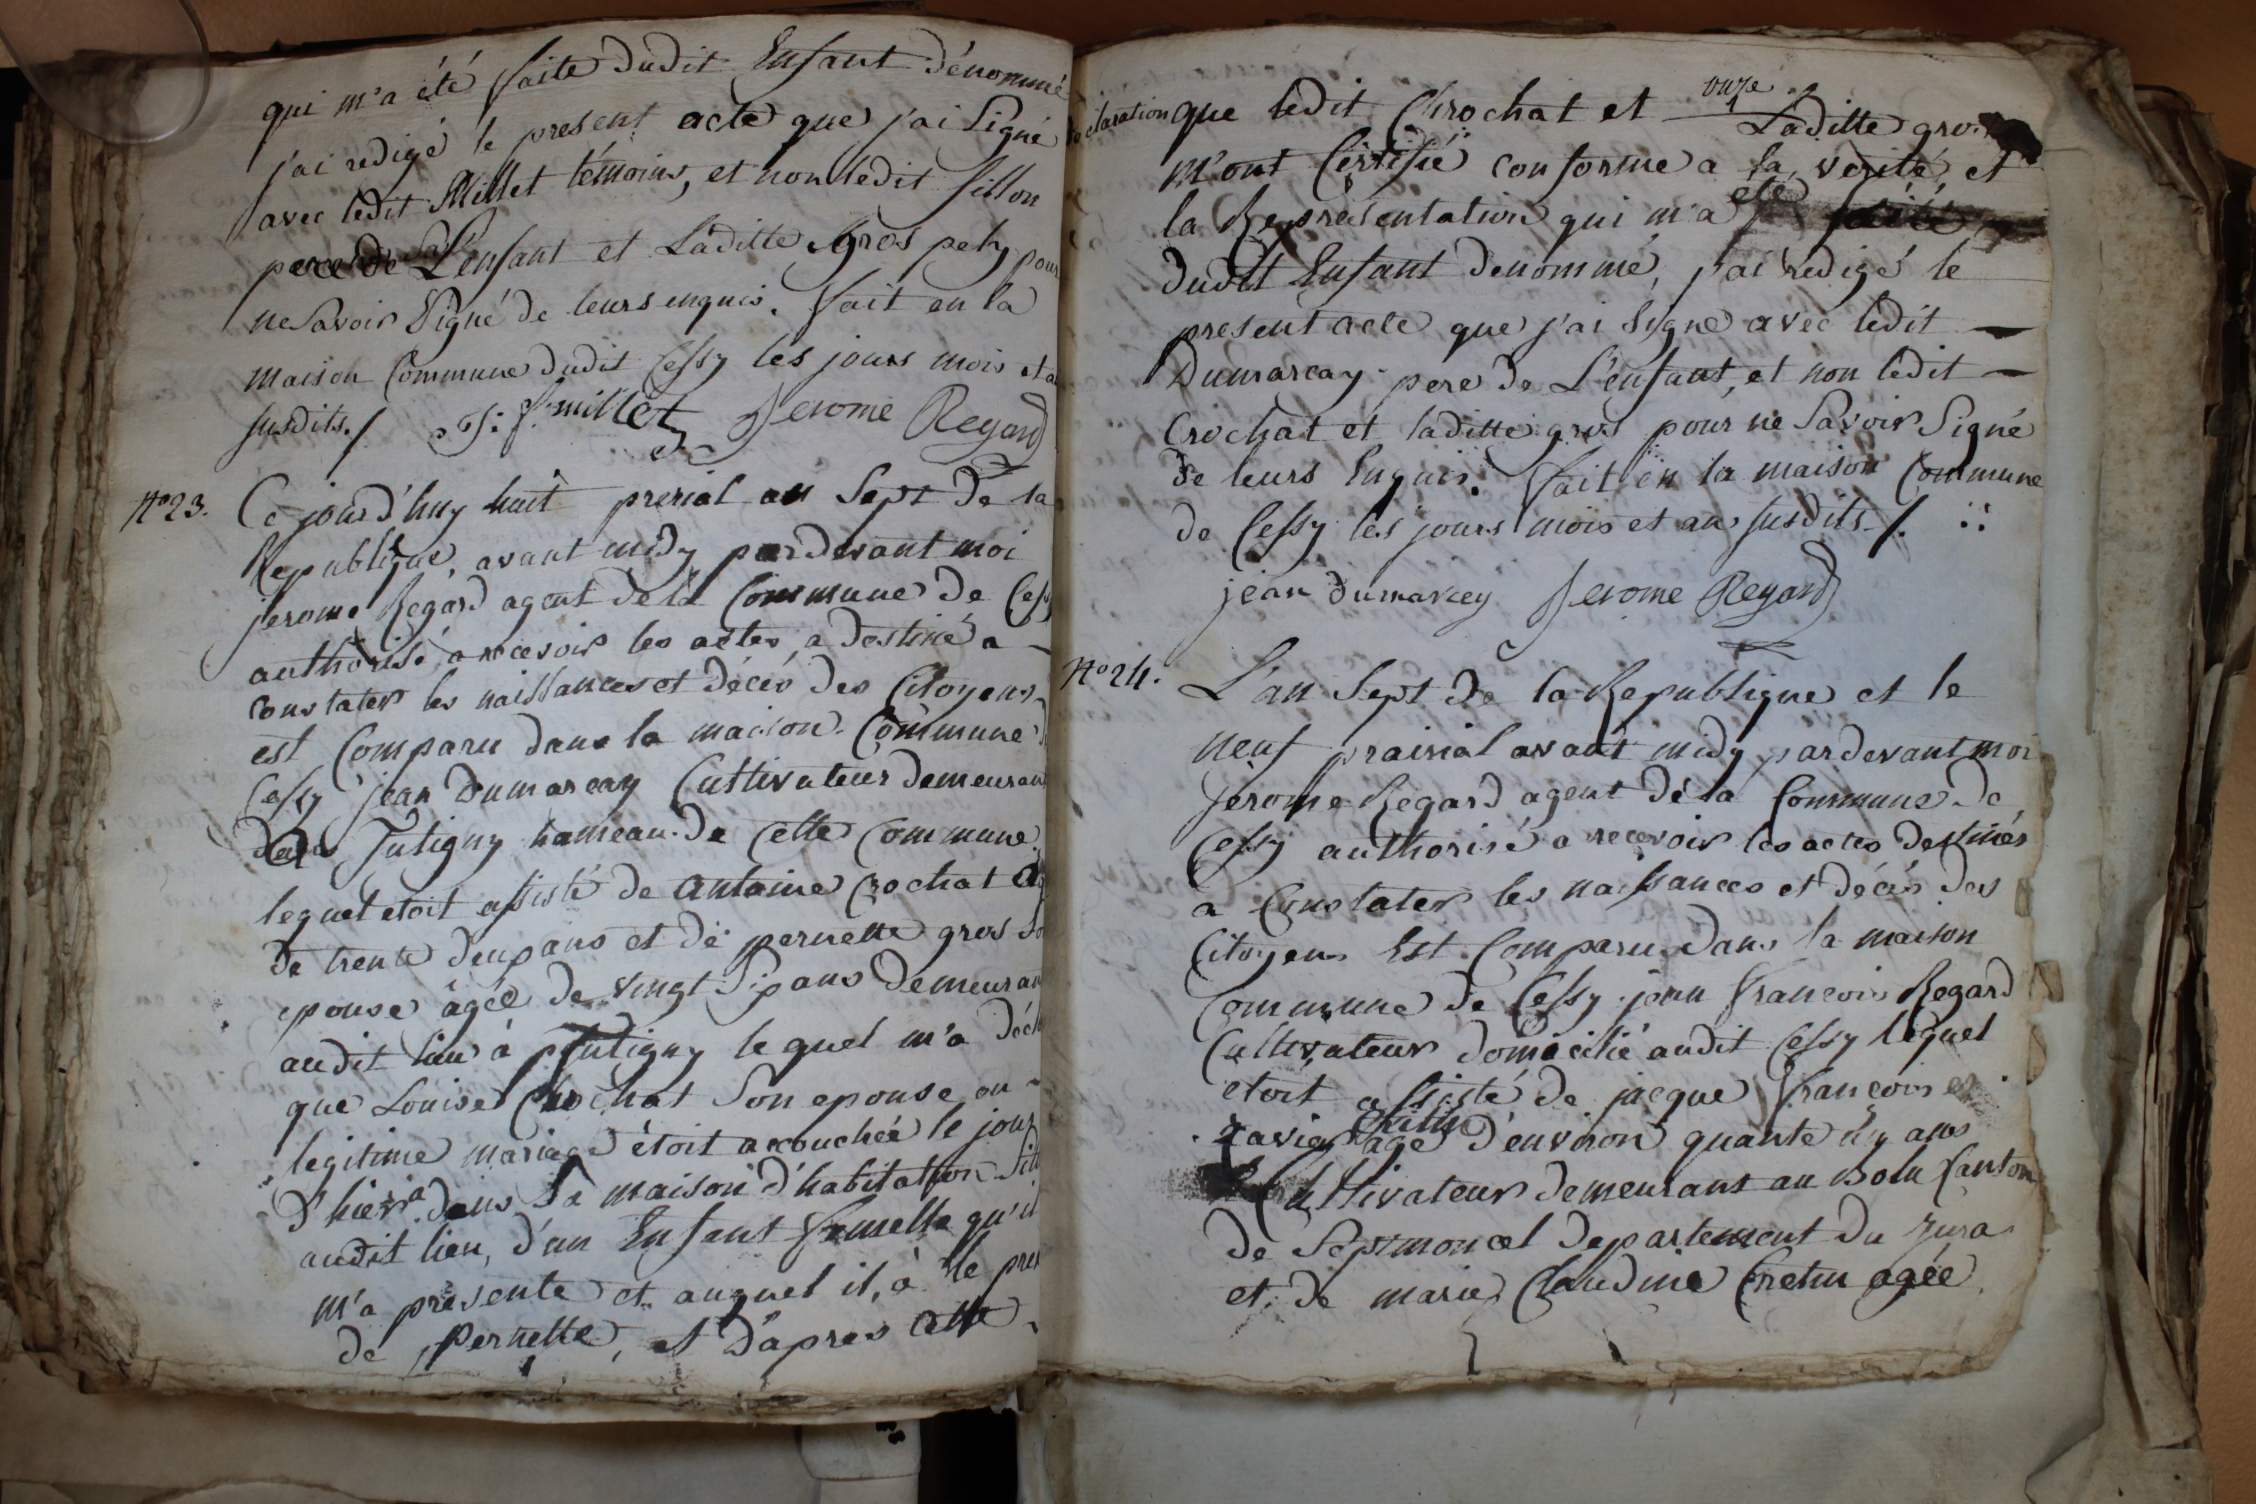 qui m'a été faite dudit Enfant dénommé
j'ai redigé le present acte que j'ai Signé
avec ledit Millet témoins, et non ledit fillon
pere de L'enfant et Laditte Gros pely pour
ne Savoir Signé de leurs enquis. fait en la
maison Commune dudit Cessy les jours mois et a
susdits./. J: f. millet Jerome Regard
No 23. Ce jourd'huy huit prerial an Sept de la
Republique, avant midy pardevant moi
jerome Regard agent de la Commune de Cessy
authorisé a recevoir les actes, a destiné a
constater les naissances et décés des Citoyens
est Comparu dans la maison Commune d
Cessy jean Dumarcay Cultivateur demeuran
dans Tutigny hameau de cette Commune
lequel etoit assisté de antoine Crochat ag
de trente deux ans et de pernette gros So
epouse agée de vingt Six ans demeuran
audit lieu à tutigny lequel m'a décl
que Louise Crochat Son epouse en
legitime mariage étoit accouchée le jour
d'hier dans Sa maison d'habitation Sit
audit lieu, d'un Enfant femelle qu'il
m'a presenté et auquel il, à le pren
de Pernette, et D'apres cette
declaration que ledit Chrochat et Laditte gros
onze
m'ont Certifié conforme a la verité, et
la Representation qui m'a eté faite
dudit Enfant denommé, j'ai redigé le
present acte que j'ai Signé avec ledit
Dumarcay pere de L'enfant, et non ledit
Crochat et laditte gros pour ne Savoir Signé
de leurs Enquis. fait en la maison Commune
de Cessy les jours mois et an susdits./.
jean dumarcey Jerome Regard
No 24. L'an Sept de la Republique et le
neuf prairial avant midy, pardevant moi
Jerome Regard agent de la Commune de
Cessy authorisé a recevoir les actes destinés
a Constater les naissances et décés des
Citoyens Est Comparu dans la maison
Commune de Cessy jean francois Regard
Cultivateur domicilié audit Cessy lequel
etoit assisté de jacque francois
Zavier agé d'environ quante un ans
Cultivateur demeurant au Bolu Canton
de Septmoncel departement du Jura
et de marie Claudine Cretin agée